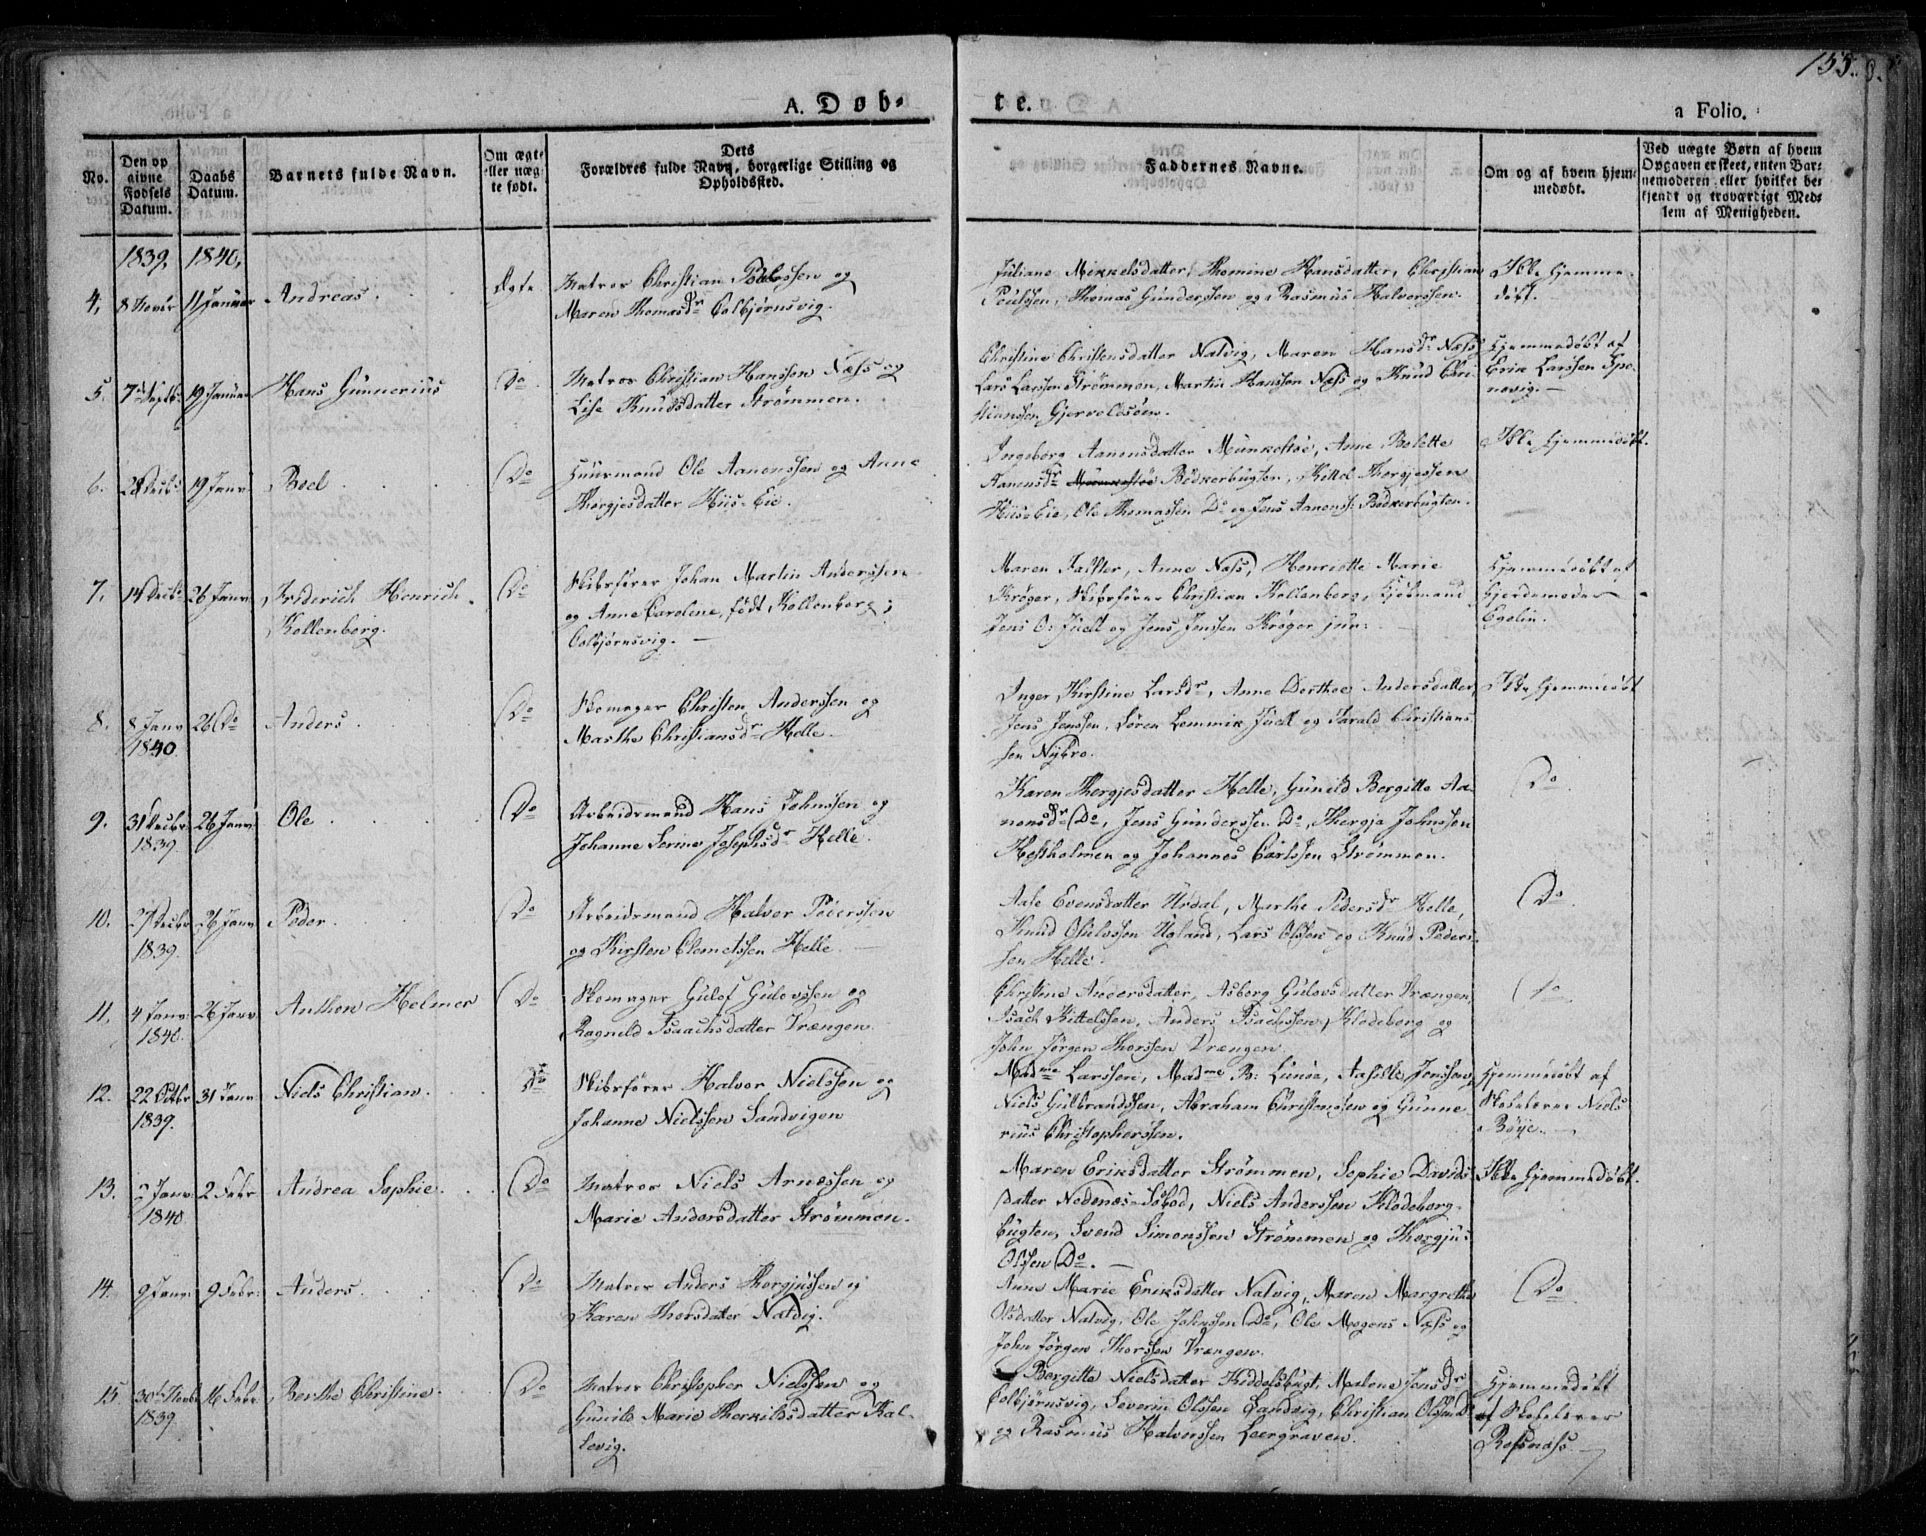 155.
A. Døb-
te.
a Folio.
No.
Den op
givne
Fødsels
Datum.
Daabs
Datum.
Barnets fulde Navn.
Om ægte
eller uæg-
te født.
Dets
Forældres fulde Navn, borgerlige Stilling og
Opholdssted.
Faddernes Navne.
Om og af hvem hjem-
medøbt.
Ved uægte Børn af hvem
Opgaven er skeet, enten Bar-
nemoderen eller hvilket be-
kjendt og troværdigt Med-
lem af Menigheden.
1839. 1840.
4. 8 Novbr 11 Januar Andreas. Ægte Matros Christian Poulssen og
Maren Thomasdr Colbjørnsvig.
Juliane Mikkelsdatter, Thomine Hansdatter, Christian
Poulssen, Thomas Gunderssen og Rasmus Halvorssen.
Ikke hjemme-
døbt.
5. 7de Septbr 19 Januar Hans Gunnerius Do Matros Christian Hanssen Næss og
Lise Knudsdatter Strømmen.
Christine Christensdatter Natvig, Maren Hansdr Næss,
Lars Larssen Strømmen, Martin Hanssen Næss og Knud Chri-
stianssen Gjervoldsøen.
Hjemmedøbt af
Erik Larssen Spo-
revig.
6. 28 Decbr 19 Janr Boel Do Huusmand Ole Aanenssen og Anne
Thorgjesdatter Hiis-Eie.
Ingeborg Aanonsdatter Munkestøe, Anne Bolette
Aanonsdr Munkestøe Bødkerbugten, Kittel Thorgjessen
Hiis-Eie, Ole Thomassen Do og Jens Aanonss. Bødkerbugten.
Ikke hjemmedøbt.
7. 14 Decbr 26 Janr Friderich Henrich
Kollenberg.
Do Skibsfører Johan Martin Anderssen
og Anne Caroline, født Kollenberg;
Colbjørnsvig.
Maren Falster, Anne Næss, Henriette Marie
Krøger, Skibsfører Christian Kollenberg, Kjøbmand
Jens O. Juell og Jens Jenssen Krøger jun:
Hjemmedøbt af
Gjordemoder
Egelin.
8. 8 Janr
1840
26 Do Anders. Do Skomager Christen Anderssen og
Marthe Christiansdr Helle.
Inger Kirstine Larsdr, Anne Dorthea Andersdatter,
Jens Jenssen, Søren Lemmik Juell og Tarald Christians-
sen Nybro.
Ikke hjemmedøbt
9. 31 Decbr
1839.
26 Janr Ole. Do Arbeidsmand Hans Johnssen og
Johanne Serine Josephsdr Helle.
Karen Thorgjesdatter Helle, Gunild Bergitte Aa-
nonsdr Do, Jens Gunderssen Do, Thergje Johnssen
Hestholmen og Johannes Carlssen Strømmen.
Do
10. 27 Decbr
1839.
26 Janr Peder. Do Arbeidsmand Halvor Pederssen
og Kirsten Clemetssen Helle
Aase Evensdatter Urdal, Marthe Pedersdr Helle,
Knud Osulvssen Ugland, Lars Olssen og Knud Peders-
sen Helle.
Do
11. 4 Janr
1840.
26 Janr Anthon Helmer Do Skomager Gulof Gulovssen og
Ragnild Isaachsdatter Vrængen
Christine Andersdatter, Asborg Gulovsdatter Vrængen,
Isach Kittelssen, Anders Isachssen Klodeborg og
John Jørgen Thorssen Vrængen.
Do
12. 22 Octbr
1839.
31 Janr Niels Christian. Do Skibsfører Halvor Nielssen og
Johanne Nielssen Sandvigen
Madme Larssen, Madme B: Lunøe, Aasille Jenssen,
Niels Gulbrandssen, Abraham Christenssen og Gunne-
rius Christopherssen.
Hjemmedøbt af
Skolelærer Niels
Bøye.
13. 7 Janr
1840
2 Febr Andrea Sophie. Do Matros Niels Arnessen og
Marie Andersdatter Strømmen.
Maren Eriksdatter Strømmen, Sophie Davids-
datter Nedenæs-Søbod, Niels Anderssen Klodeborg-
bugten, Svend Simonssen Strømmen og Thorgjus
Olssen Do.
Ikke hjemmedøbt.
14. 9 Janr 9 Febr Anders. Do Matros Anders Thorgjussen og
Karen Thorsdatter Natvig.
Anne Marie Eriksdatter Natvig, Maren Margrethe
Olsdatter Natvig, Ole Johnssen Do, Ole Mogens Næss og
John Jørgen Thorssen Vrængen.
Do
15 30te Novbr
1839
16 Febr Berthe Christine. Do Matros Christopher Nielssen og
Gunild Marie Therkildsdatter Kal-
levig.
Bergitte Nielsdatter Kiddelsbugt, Malene Jensdr
Colbjørnsvig, Severin Olssen Sandvig, Christian Olssen Do
og Rasmus Halvorssen Leergraven.
Hjemmedøbt
af Skolelærer
Rosenæss